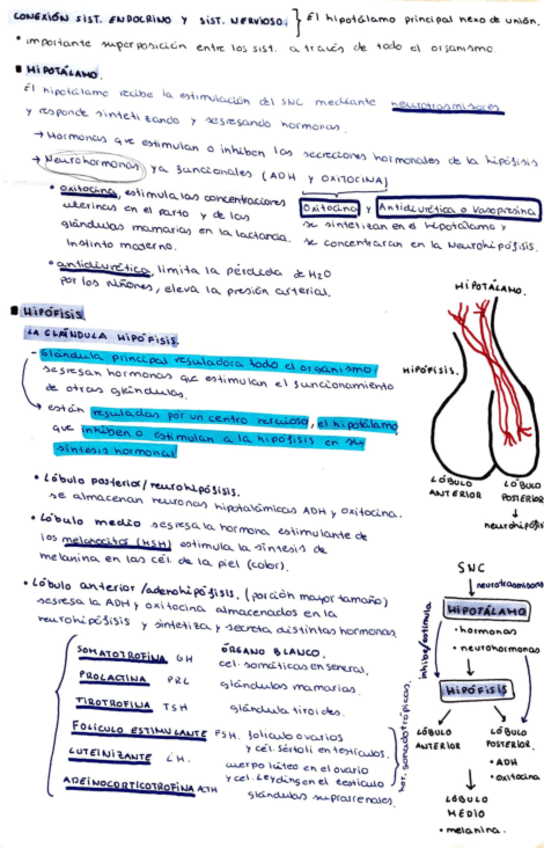 CONEXIÓN SIST. ENDOCRINO Y SIST. NERVIOSO. } El hipotálamo principal nexo de unión.
• importante superposición entre los sist. a través de todo el organismo.
■ HIPOTÁLAMO.
El hipotálamo recibe la estimulación del SNC mediante neurotrasmisores
y responde sintetizando y segregando hormonas.
→ Hormonas que estimulan o inhiben las secreciones hormonales de la hipófisis
→ Neurohormonas ya funcionales (ADH y OXITOCINA)
• oxitocina, estimula las concentraciones
uterinas en el parto y de las
glándulas mamarias en la lactancia.
Instinto moderno.
Oxitocina y Antidiurética o Vasopresina
se sintetizan en el hipotálamo y
se concentraran en la Neurohipófisis.
• antidiurética, limita la pérdida de H2O
por los riñones, eleva la presión arterial.
■ HIPÓFISIS
LA GLÁNDULA HIPÓFISIS.
- Glándula principal reguladora todo el organismo,
segresan hormonas que estimulan el funcionamiento
de otras glándulas.
→ están reguladas por un centro nervioso, el hipotálamo,
que inhiben o estimulan a la hipófisis en su
síntesis hormonal
HIPOTÁLAMO.
HIPÓFISIS.
LÓBULO ANTERIOR
LÓBULO POSTERIOR
↓
neurohipófisis
• Lóbulo posterior/neurohipófisis.
se almacenan neuronas hipotalámicas ADH y oxitocina.
• Lóbulo medio segresa la hormona estimulante de
los melanocitos (MSH) estimula la síntesis de
melanina en las cél. de la piel (color).
• Lóbulo anterior/adenohipófisis. (porción mayor tamaño)
segresa la ADH y oxitocina almacenados en la
neurohipófisis y sintetiza y secreta distintas hormonas.
ÓRGANO BLANCO.
SOMATOTROFINA GH cél. somáticas en general.
PROLACTINA PRL glándulas mamarias.
TIROTROFINA TSH glándula tiroides.
FOLICULO ESTIMULANTE FSH. foliculo ovarios
y cél. sértoli en testículos.
LUTEINIZANTE LH. cuerpo lúteo en el ovario
y cel. Leyding en el testículo
ADEINOCORTICOTROFINA ACTH glándulas suprarrenales.
hor. somadotrópicas.
SNC
↓ neurotrasmisores
HIPOTÁLAMO
inhibe/estimula
• hormonas
• neurohormonas
HIPÓFISIS
LÓBULO ANTERIOR
LÓBULO POSTERIOR.
• ADH
• oxitocina
LÓBULO MEDIO
• melanina.